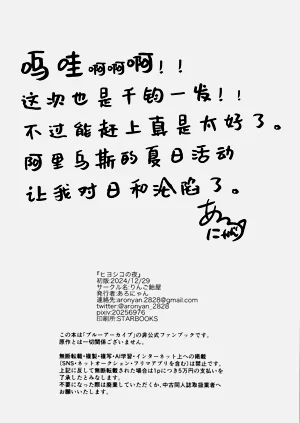 呜哇啊啊啊！！
这次也是千钧一发！！
不过能赶上真是太好了。
阿里乌斯的夏日活动
让我对日和沦陷了。
あろ
にゃん
『ヒヨシコの夜』
初版:2024/12/29
サークル名:りんご飴屋
発行者:あろにゃん
連絡先:aronyan.2828@gmail.com
twitter:@aronyan_2828
pixiv:20256976
印刷所:STARBOOKS
この本は「ブルーアーカイブ」の非公式ファンブックです。
原作とは一切関係ございません。
無断転載・複製・複写・AI学習・インターネット上への掲載
(SNS・ネットオークション・フリマアプリを含む)は禁止です。
上記に反して無断転載された場合は1pにつき5万円の支払いを
了承したとみなします。
不要になった際は廃棄していただくか、中古同人誌取扱業者へ
お願いいたします。